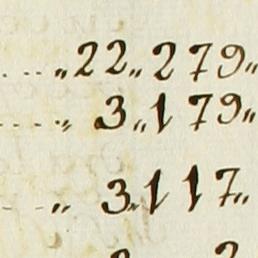 ....„22„279„
......„ 3„179„
....„ 3„117„